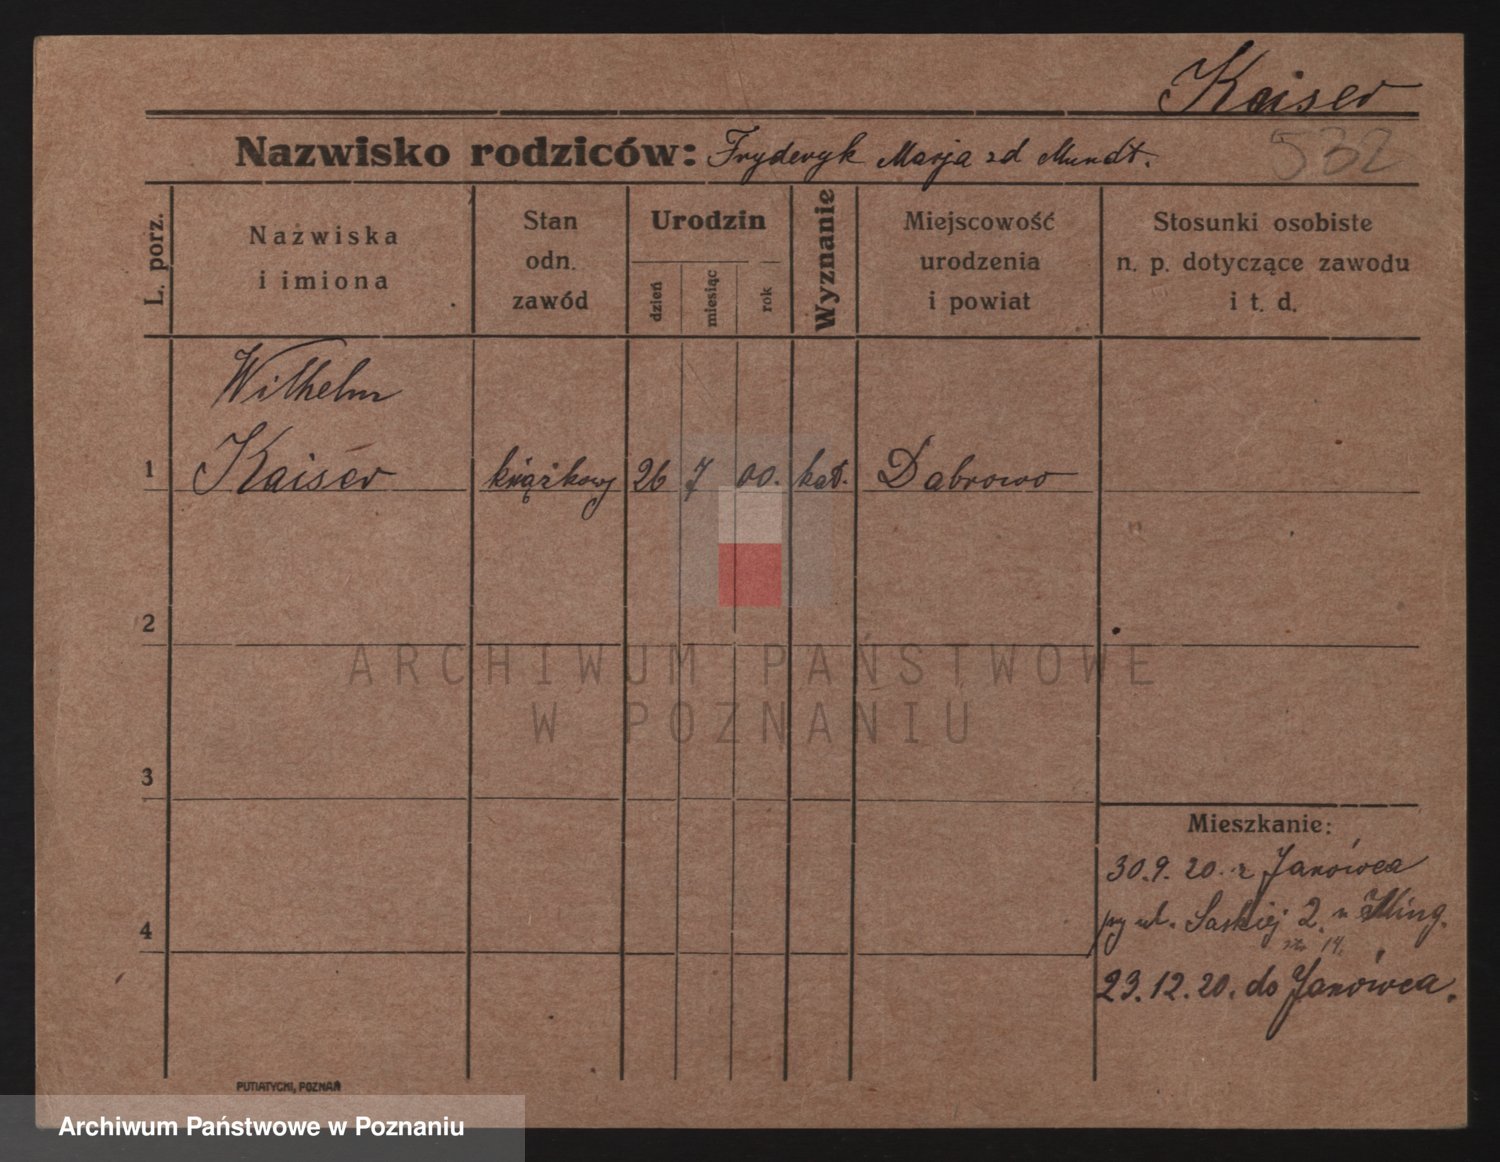 Kaiser
Nazwisko rodziców: Fryderyk Marja zd Mundt.
532
L. porz.
Nazwiska
i imiona
Stan
odn.
zawód
Urodzin
dzień
miesiąc
rok
Wyznanie
Miejscowość
urodzenia
i powiat
Stosunki osobiste
n. p. dotyczące zawodu
i t. d.
Wilhelm
1 Kaiser 26 7 00. kat. Dabrowo
2
ARCHIWUM PAŃSTWOWE
W POZNANIU
3
Mieszkanie:
30.9.20. z Janówca
4 py ul. Saskiej 2.
23.12.20. do Janówca.
PUTIATYCKI, POZNAŃ
Archiwum Państwowe w Poznaniu